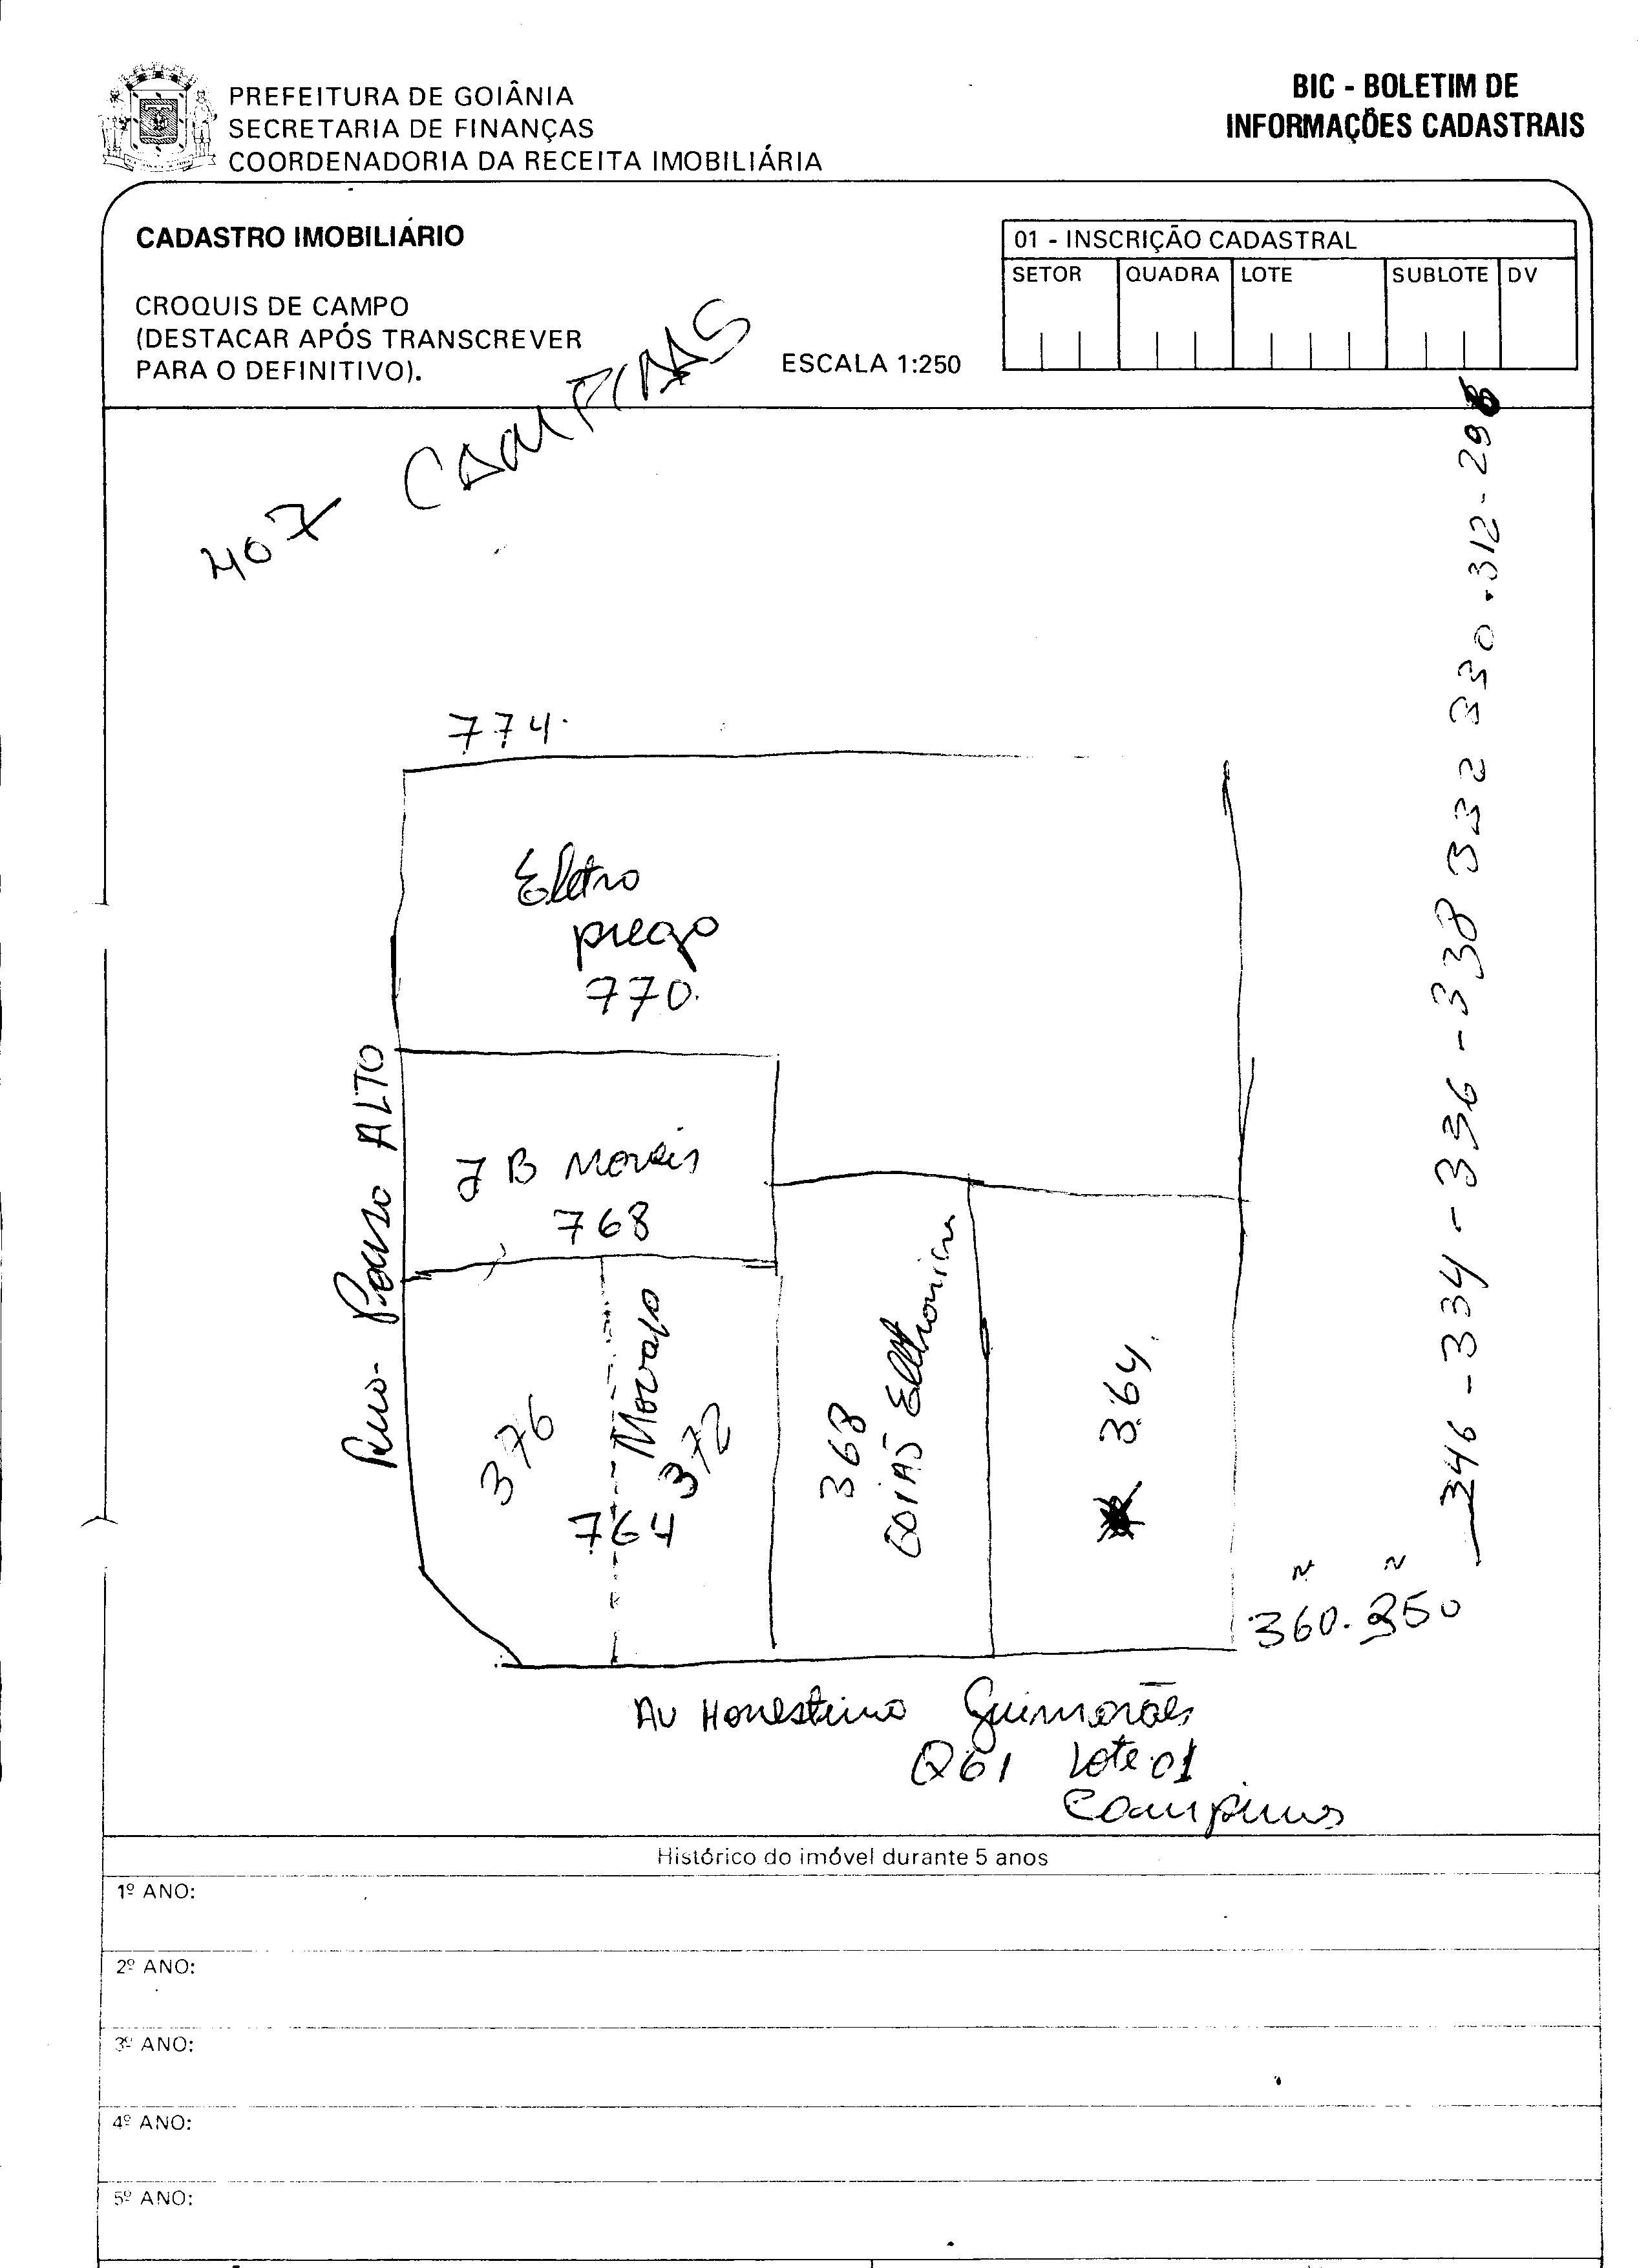 PREFEITURA DE GOIÂNIA
SECRETARIA DE FINANÇAS
COORDENADORIA DA RECEITA IMOBILIÁRIA
BIC - BOLETIM DE
INFORMAÇÕES CADASTRAIS
CADASTRO IMOBILIÁRIO
CROQUIS DE CAMPO
(DESTACAR APÓS TRANSCREVER
PARA O DEFINITIVO).
ESCALA 1:250
01 - INSCRIÇÃO CADASTRAL
SETOR QUADRA LOTE SUBLOTE DV
407 CAMPINAS
774.
Eletro
prego
770.
J B Morais
768
Rua- Pouso ALTO
376
372
764
368
GOIÁS Eletronica
364.
360. 350
346 - 334 - 336 - 338 332 330 . 312 - 298
Av Honestino Guimarães
Q61 Lote 01
Campinas
Histórico do imóvel durante 5 anos
1º ANO:
2º ANO:
3º ANO:
4º ANO:
5º ANO: